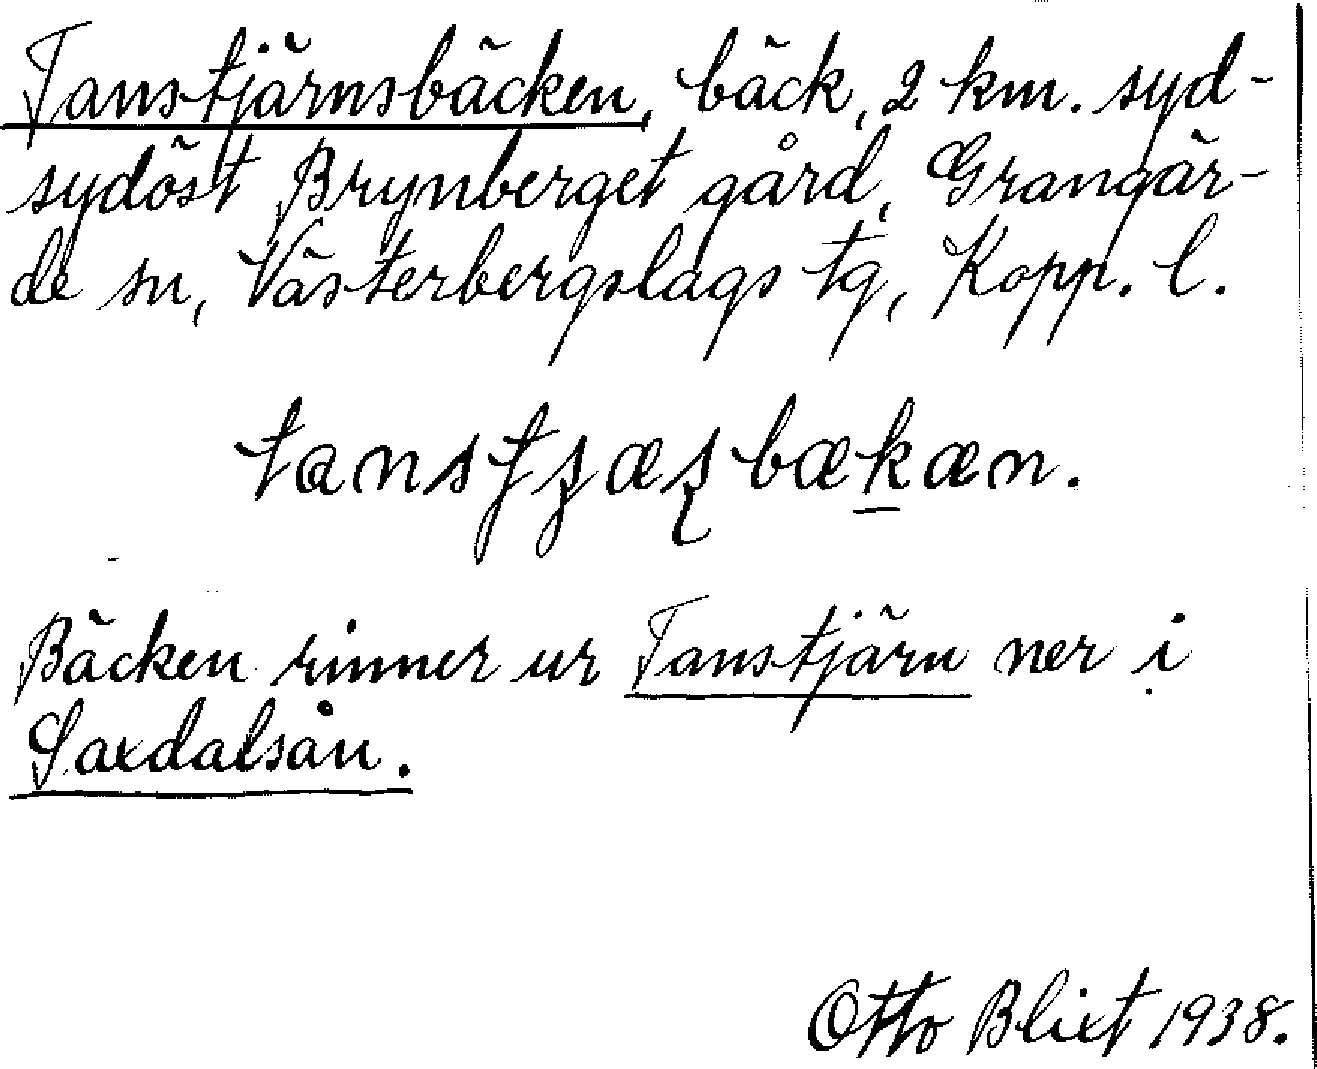 Tanstjärnsbäcken, bäck, 2 km. syd-
sydöst Brynberget gård, Grangär-
de sn, Västerbergslags tg, Kopp. l.
Bäcken rinner ur Tanstjärn ner i
Saxdalsån.
Otto Blixt 1938.